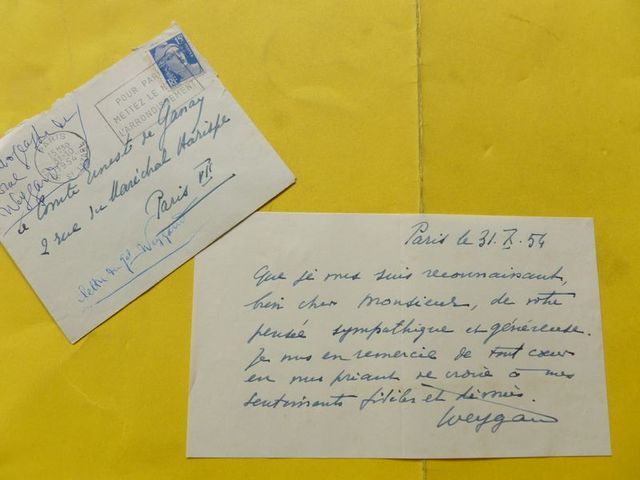 15F
RF
POUR PARIS
METTEZ LE N°
L'ARRONDISSEMENT
PARIS
Autographe du
Weygand
Comte Ernest de Ganay
2 rue du Maréchal Harispe
Paris VII
lettre du Gal Weygand
Paris le 31.X.54
Que je vous suis reconnaissant,
bien cher Monsieur, de votre
pensée sympathique et généreuse.
Je vous en remercie de tout cœur
en vous priant de croire à mes
sentiments fidèles et dévoués.
Weygand